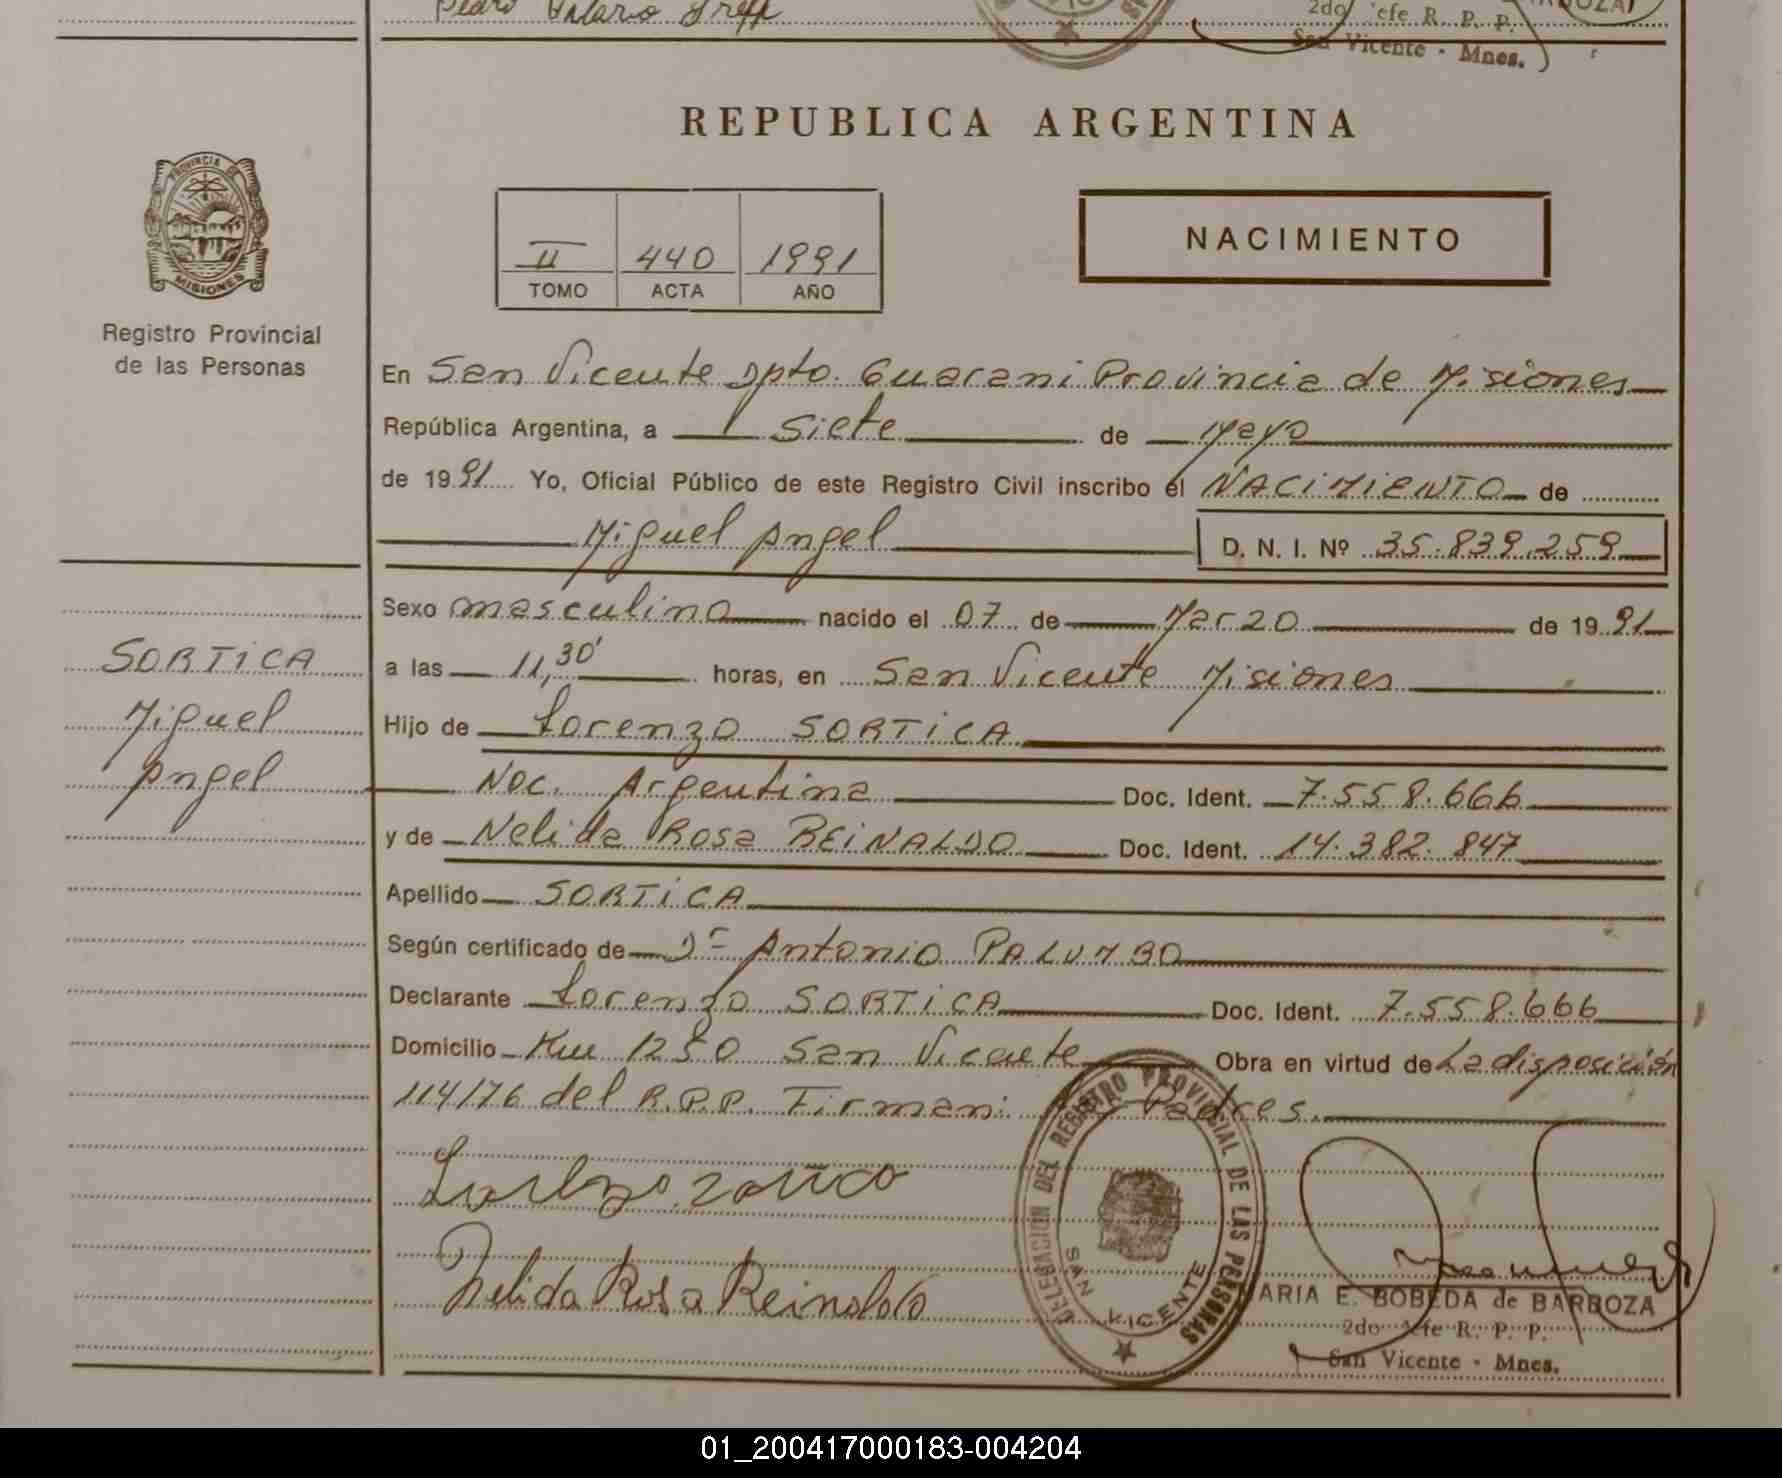 Pedro
2do Jefe R. P. P.
San Vicente - Mnes.
REPUBLICA ARGENTINA
PROVINCIA DE
MISIONES
Registro Provincial
de las Personas
II 440 1991
TOMO ACTA AÑO
NACIMIENTO
En San Vicente Dpto. Guarani Provincia de Misiones
República Argentina, a siete de Mayo
de 1991 Yo, Oficial Público de este Registro Civil inscribo el NACIMIENTO de
Miguel Angel D. N. I. Nº 35.839.259
Sexo masculino nacido el 07 de Marzo de 1991
a las 11,30' horas, en San Vicente Misiones
Hijo de Lorenzo SORTICA
Nac. Argentina Doc. Ident. 7.558.666
y de Nelida Rosa REINALDO Doc. Ident. 14.382.847
Apellido SORTICA
Según certificado de Dr Antonio PALUMBO
Declarante Lorenzo SORTICA Doc. Ident. 7.558.666
Domicilio Km 1250 San Vicente Obra en virtud de La disposición
114/76 del R.P.P. Firman: Padres.
SORTICA
Miguel
Angel
Nelida Rosa Reinaldo
DELEGACION DEL REGISTRO PROVINCIAL DE LAS PERSONAS
SAN VICENTE
MARIA E. BOBEDA de BARBOZA
2do Jefe R. P. P.
San Vicente - Mnes.
01_200417000183-004204